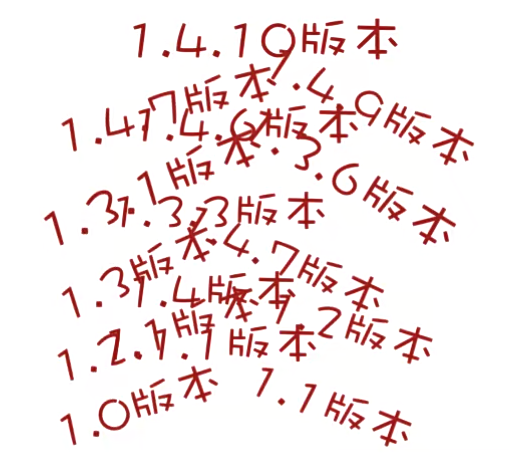 1.4.10版本
1.4.7版本
1.4.9版本
1.4.6版本
1.3.1版本
1.3.6版本
1.3.3版本
1.3版本
1.4.7版本
1.4版本
1.2版本
1.2.1版本
1.1版本
1.0版本
1.1版本